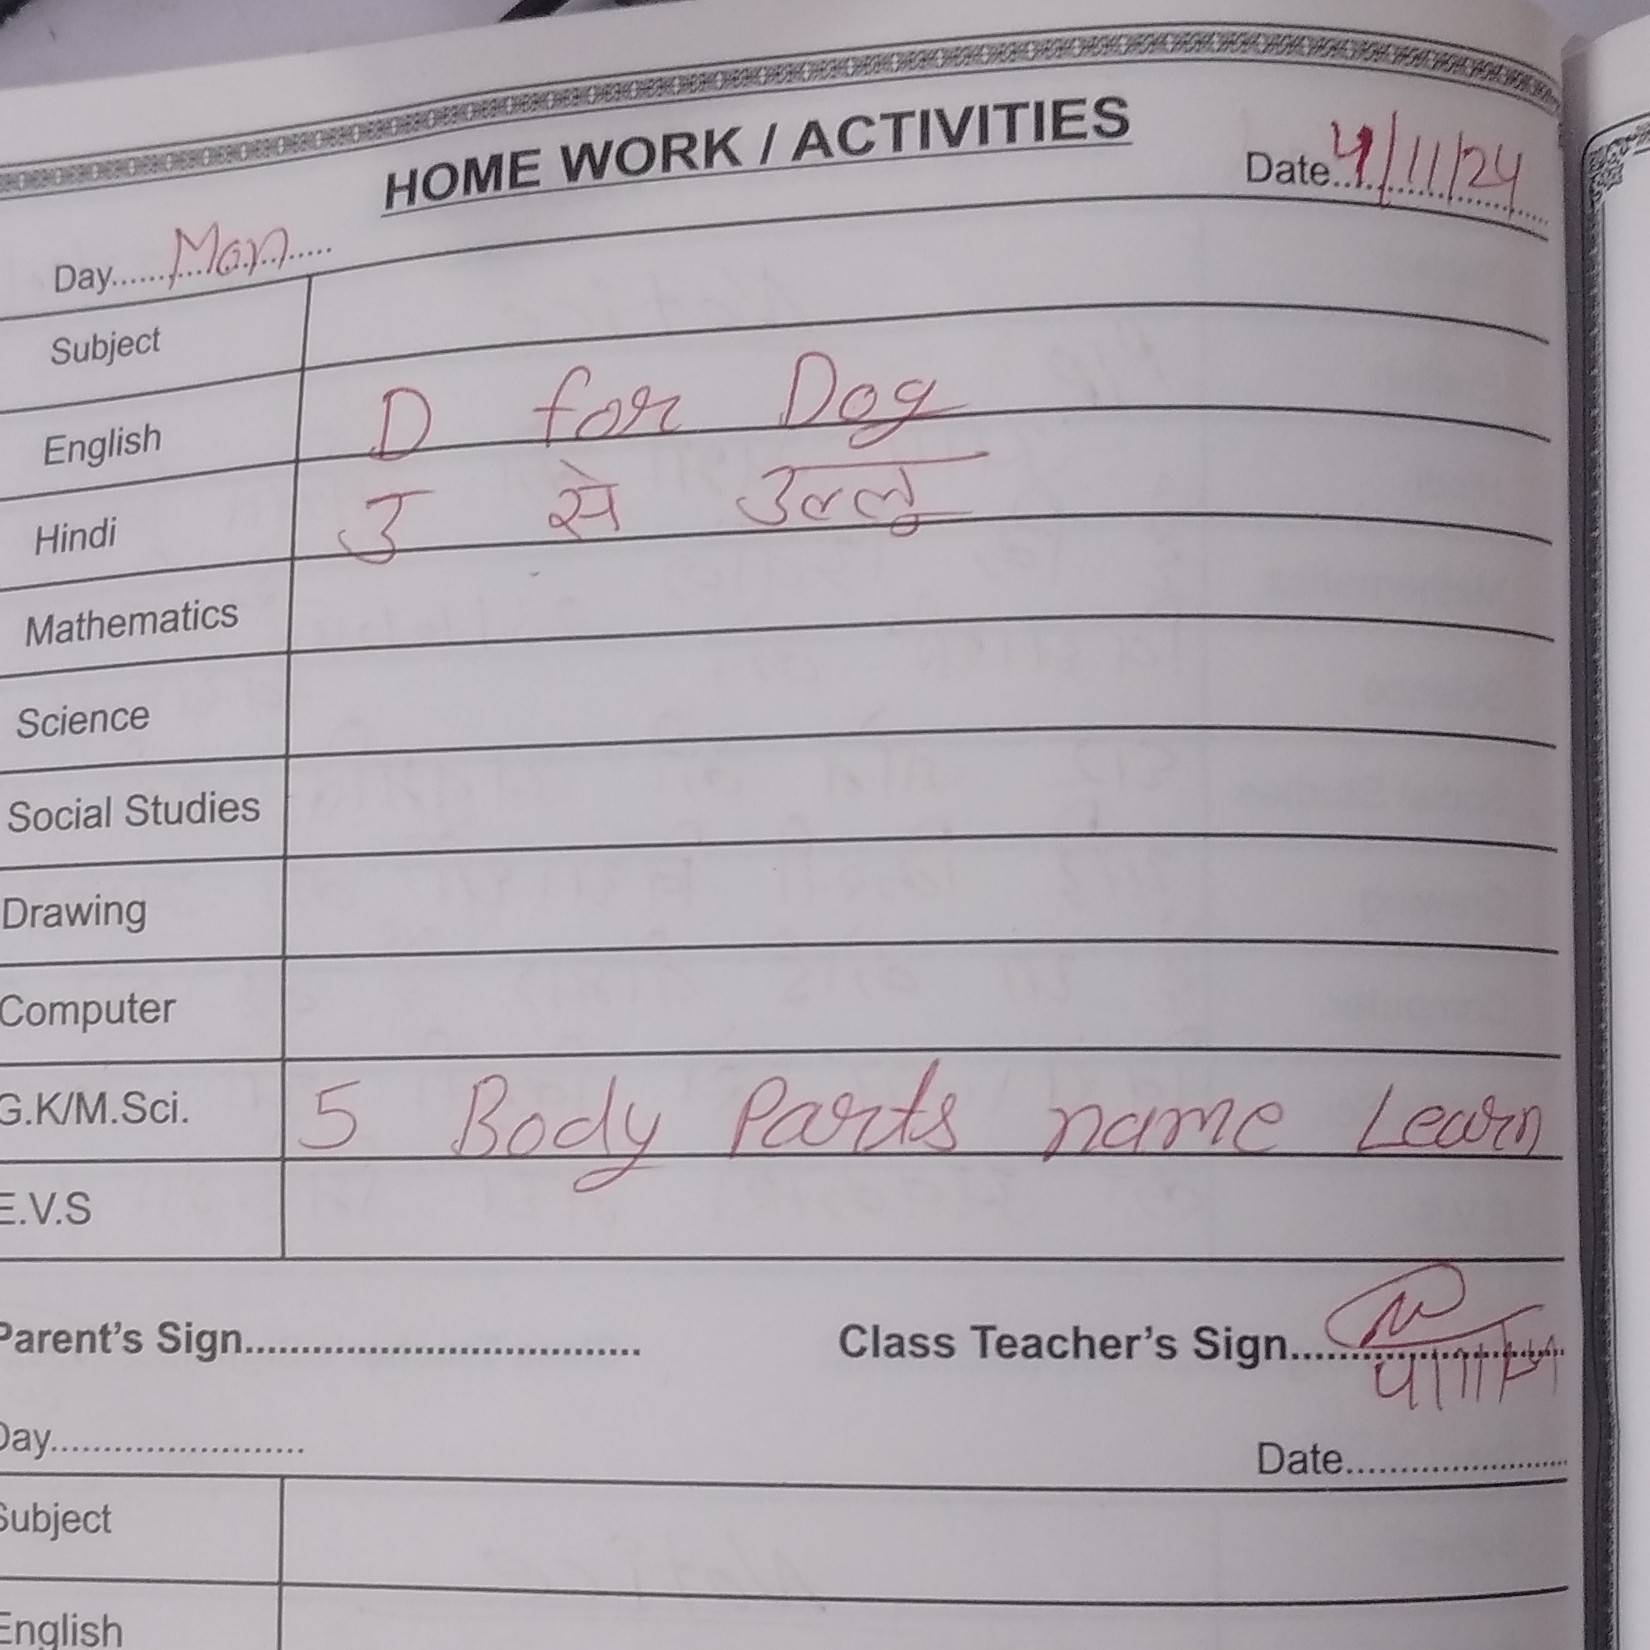 HOME WORK / ACTIVITIES
Day......Mon..... Date...4/11/24
Subject
English D for Dog
Hindi उ से उल्लू
Mathematics
Science
Social Studies
Drawing
Computer
G.K/M.Sci. 5 Body Parts name Learn
E.V.S
Parent's Sign.................................... Class Teacher's Sign.........................
4/11/24
Day........................ Date........................
Subject
English